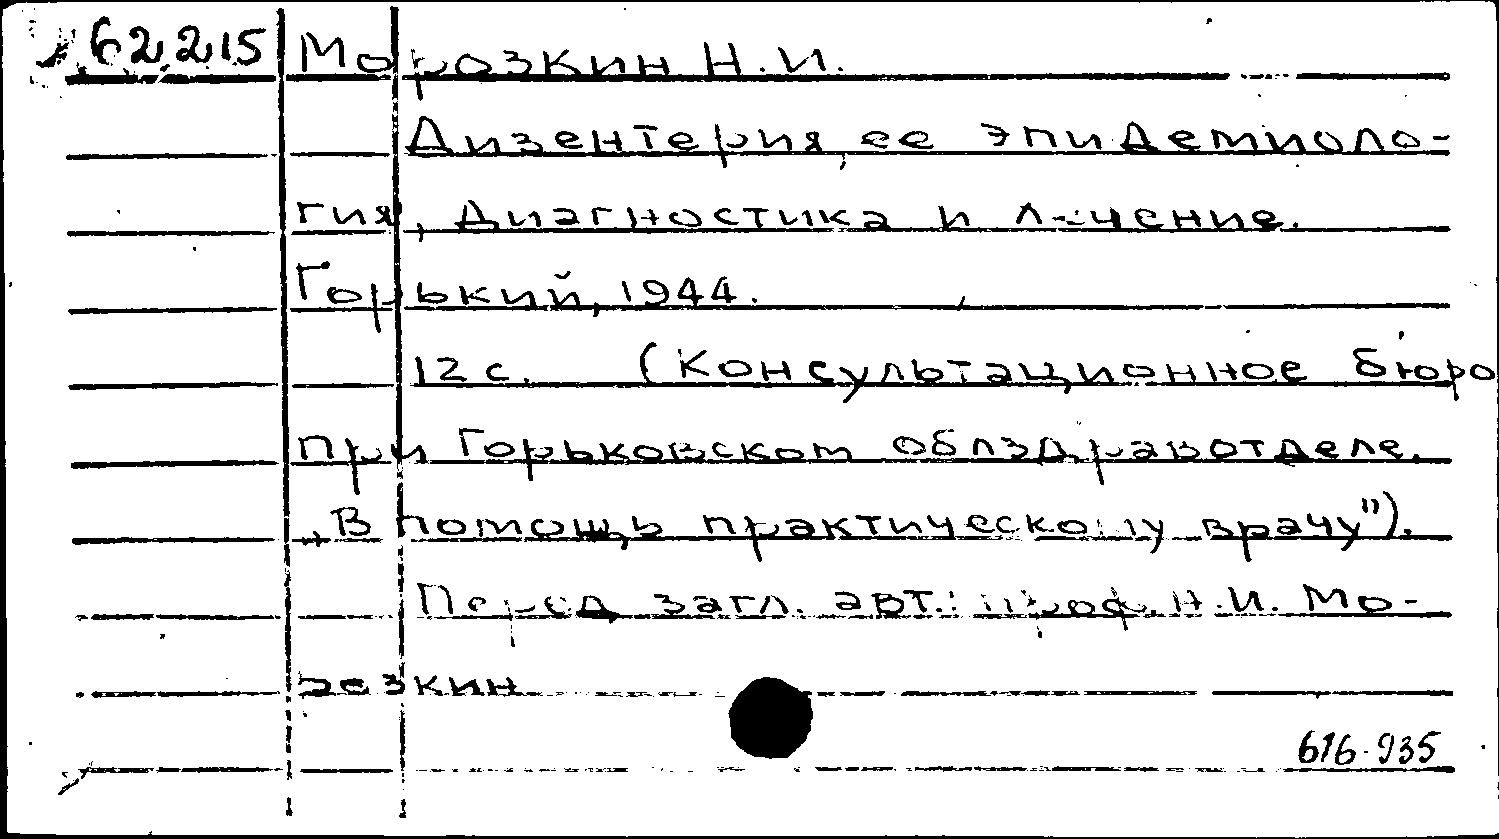 62215 Морозкин Н.И.
Дизентерия, ее эпидемиоло-
гия, диагностика и лечение.
Горький, 1944.
12 с. (Консультационное бюро
при Горьковском облздравотделе.
„В помощь практическому врачу").
Перед загл. авт.: проф. Н.И. Мо-
розкин
616.935